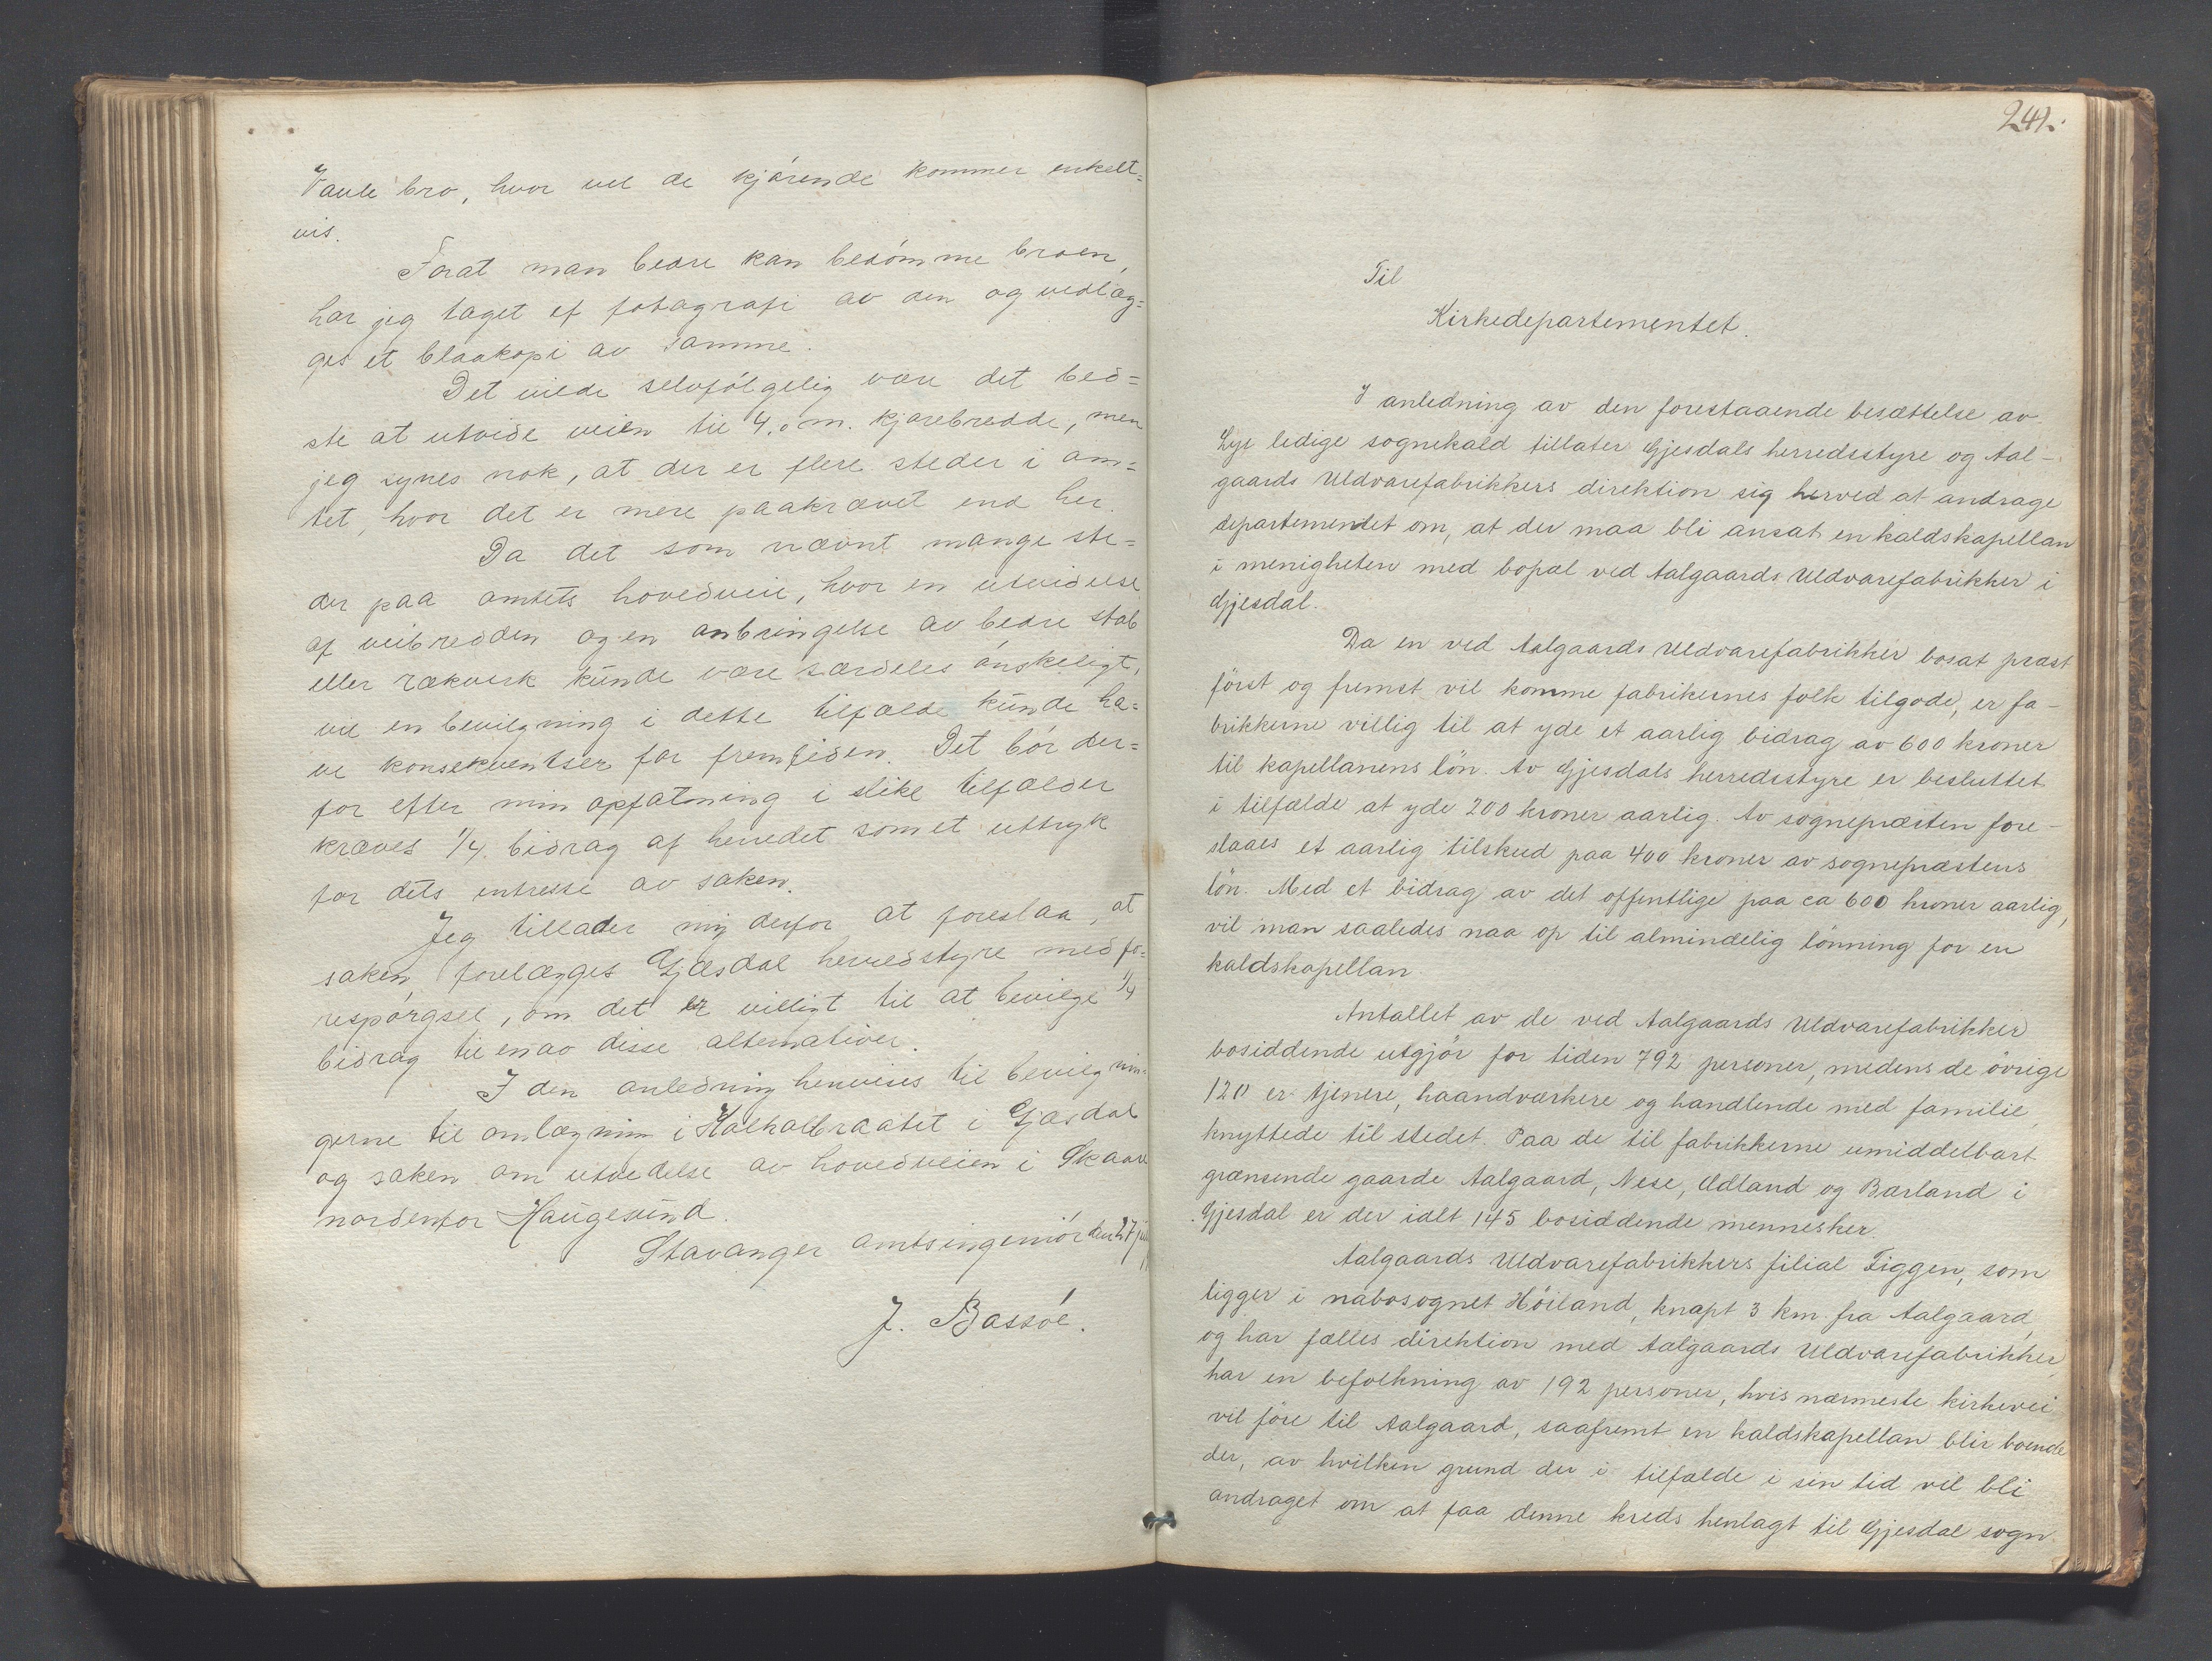 Vaule bro, hvor vel de kjørende kommer enkelt=
vis.
Forat man bedre kan bedømme broen,
har jeg taget et fotografi av den og vedlæg=
ges et blaakopi av samme.
Det vilde selvfølgelig være det bed=
ste at utvide veien til 4,0 m. kjørebredde, men
jeg synes nok, at der er flere steder i am=
tet, hvor det er mere paakrævet end her.
Da det som nævnt mange ste=
der paa amtets hovedveie, hvor en utvidelse
af veibredden og en anbringelse av bedre stab
eller rækverk kunde være særdeles ønskeligt,
vil en bevilgning i dette tilfælde kunde ha=
ve konsekventser for fremtiden. Det bør der=
for efter min opfatning i slike tilfælder
kræves 1/4. bidrag af herredet som et uttryk
for dets intresse av saken.
Jeg tillader mig derfor at foreslaa, at
saken forelægges Gjæsdal herredstyre med fo=
respørgsel, om det er villigt til at bevilge 1/4
bidrag til en av disse alternativer.
I den anledning henvises til bevilgnin=
gerne til omlægning i Kalhalbraatet i Gjæsdal
og saken om utvidelse av hovedveien i Skaare
nordenfor Haugesund.
Stavanger amtsingeniør den 27 juli
J. Bassøe.
241.
Til
Kirkedepartementet.
I anledning av den forestaaende besættelse av
Lye ledige sognekald tillater Gjesdals herredsstyre og Aal-
gaards Uldvarefabrikkers direktion sig herved at andrage
departementet om, at der maa bli ansat en kaldskapellan
i menigheten med bopæl ved Aalgaards Uldvarefabrikker i
Gjesdal.
Da en ved Aalgaards Uldvarefabrikker bosat præst
først og fremst vil komme fabrikernes folk tilgode, er fa-
brikkerne villig til at yde et aarlig bidrag av 600 kroner
til kapellanens løn. Av Gjesdals herredsstyre er besluttet
i tilfælde at yde 200 kroner aarlig. Av sognepræsten fore-
slaaes et aarlig tilskud paa 400 kroner av sognepræstens
løn. Med et bidrag av det offentlige paa ca 600 kroner aarlig,
vil man saaledes naa op til almindelig lønning for en
kaldskapellan.
Antallet av de ved Aalgaards Uldvarefabrikker
bosiddende utgjør for tiden 792 personer, medens de øvrige
120 er tjenere, haandværkere og handlende med familie,
knyttede til stedet. Paa de til fabrikkerne umiddelbart
grænsende gaarde Aalgaard, Nese, Edland og Bærland i
Gjesdal er der ialt 145 bosiddende mennesker.
Aalgaards Uldvarefabrikkers filial Figgen, som
ligger i nabosognet Høiland, knapt 3 km. fra Aalgaard,
og har fælles direktion med Aalgaards Uldvarefabrikker,
har en befolkning av 192 personer, hvis nærmeste kirkevei
vil føre til Aalgaard, saafremt en kaldskapellan blir boende
der, av hvilken grund der i tilfælde i sin tid vil bli
andraget om at faa denne kreds henlagt til Gjesdal sogn.